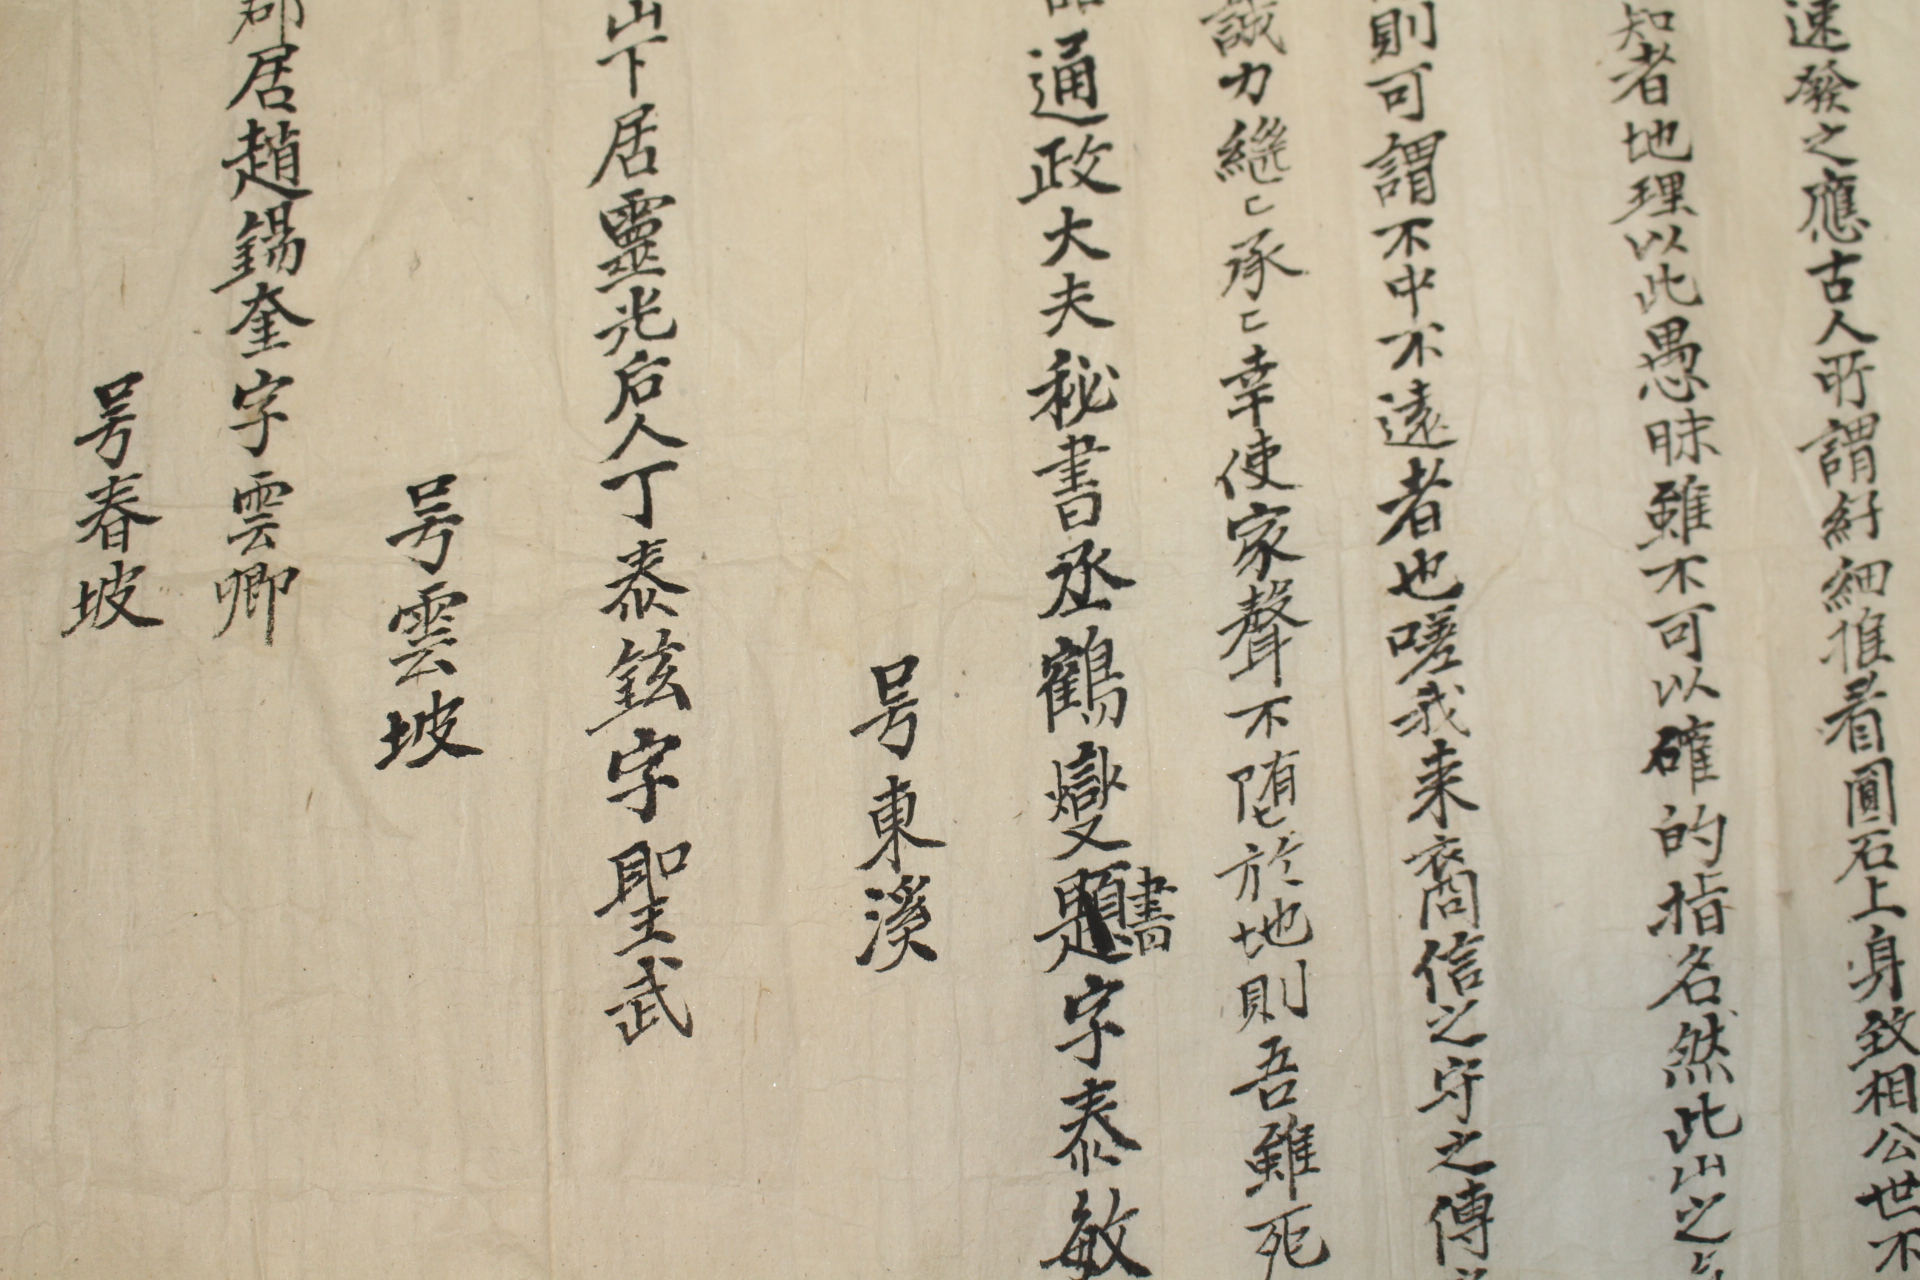 速發之應古人所謂紆細推看圓石上身致相公世不
知者地理以此愚昧雖不可以確的指名然此山之
則可謂不中不遠者也嗟我来裔信之守之傳
誠力繼〻承〻幸使家聲不堕於地則吾雖死
通政大夫秘書丞鶴燮題書字泰敏
号東溪
山下居靈光后人丁泰鉉字聖武
号雲坡
郡居趙錫奎字雲卿
号春坡